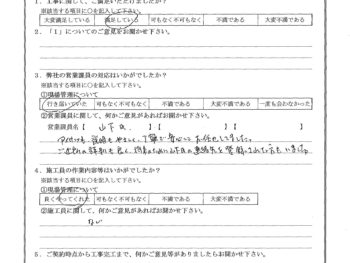 1．工事に関して、ご満足いただけましたか？
※該当する項目に○を記入して下さい。
大変満足している 満足している 可もなく不可もなく 不満である 大変不満である
2．「1」についてのご意見をお聞かせ下さい。
3．弊社の営業課員の対応はいかがでしたか？
※該当する項目に○を記入して下さい。
①現場管理について
行き届いていた 可もなく不可もなく 不満である 大変不満である 一度も会わなかった
②営業課員に関して、何かご意見があればお聞かせ下さい。
営業課員名【 山下氏 】【 】【 】
丁寧 安心して お任せしました。
ご近所の 良く
4．施工員の作業内容等はいかがでしたか？
※該当する項目に○を記入して下さい。
①現場管理について
良くやってくれた 可もなく不可もなく 不満である 大変不満である
②施工員に関して、何かご意見があればお聞かせ下さい。
ない
5．ご契約時点から工事完工まで、何かご意見等がありましたらお聞かせ下さい。